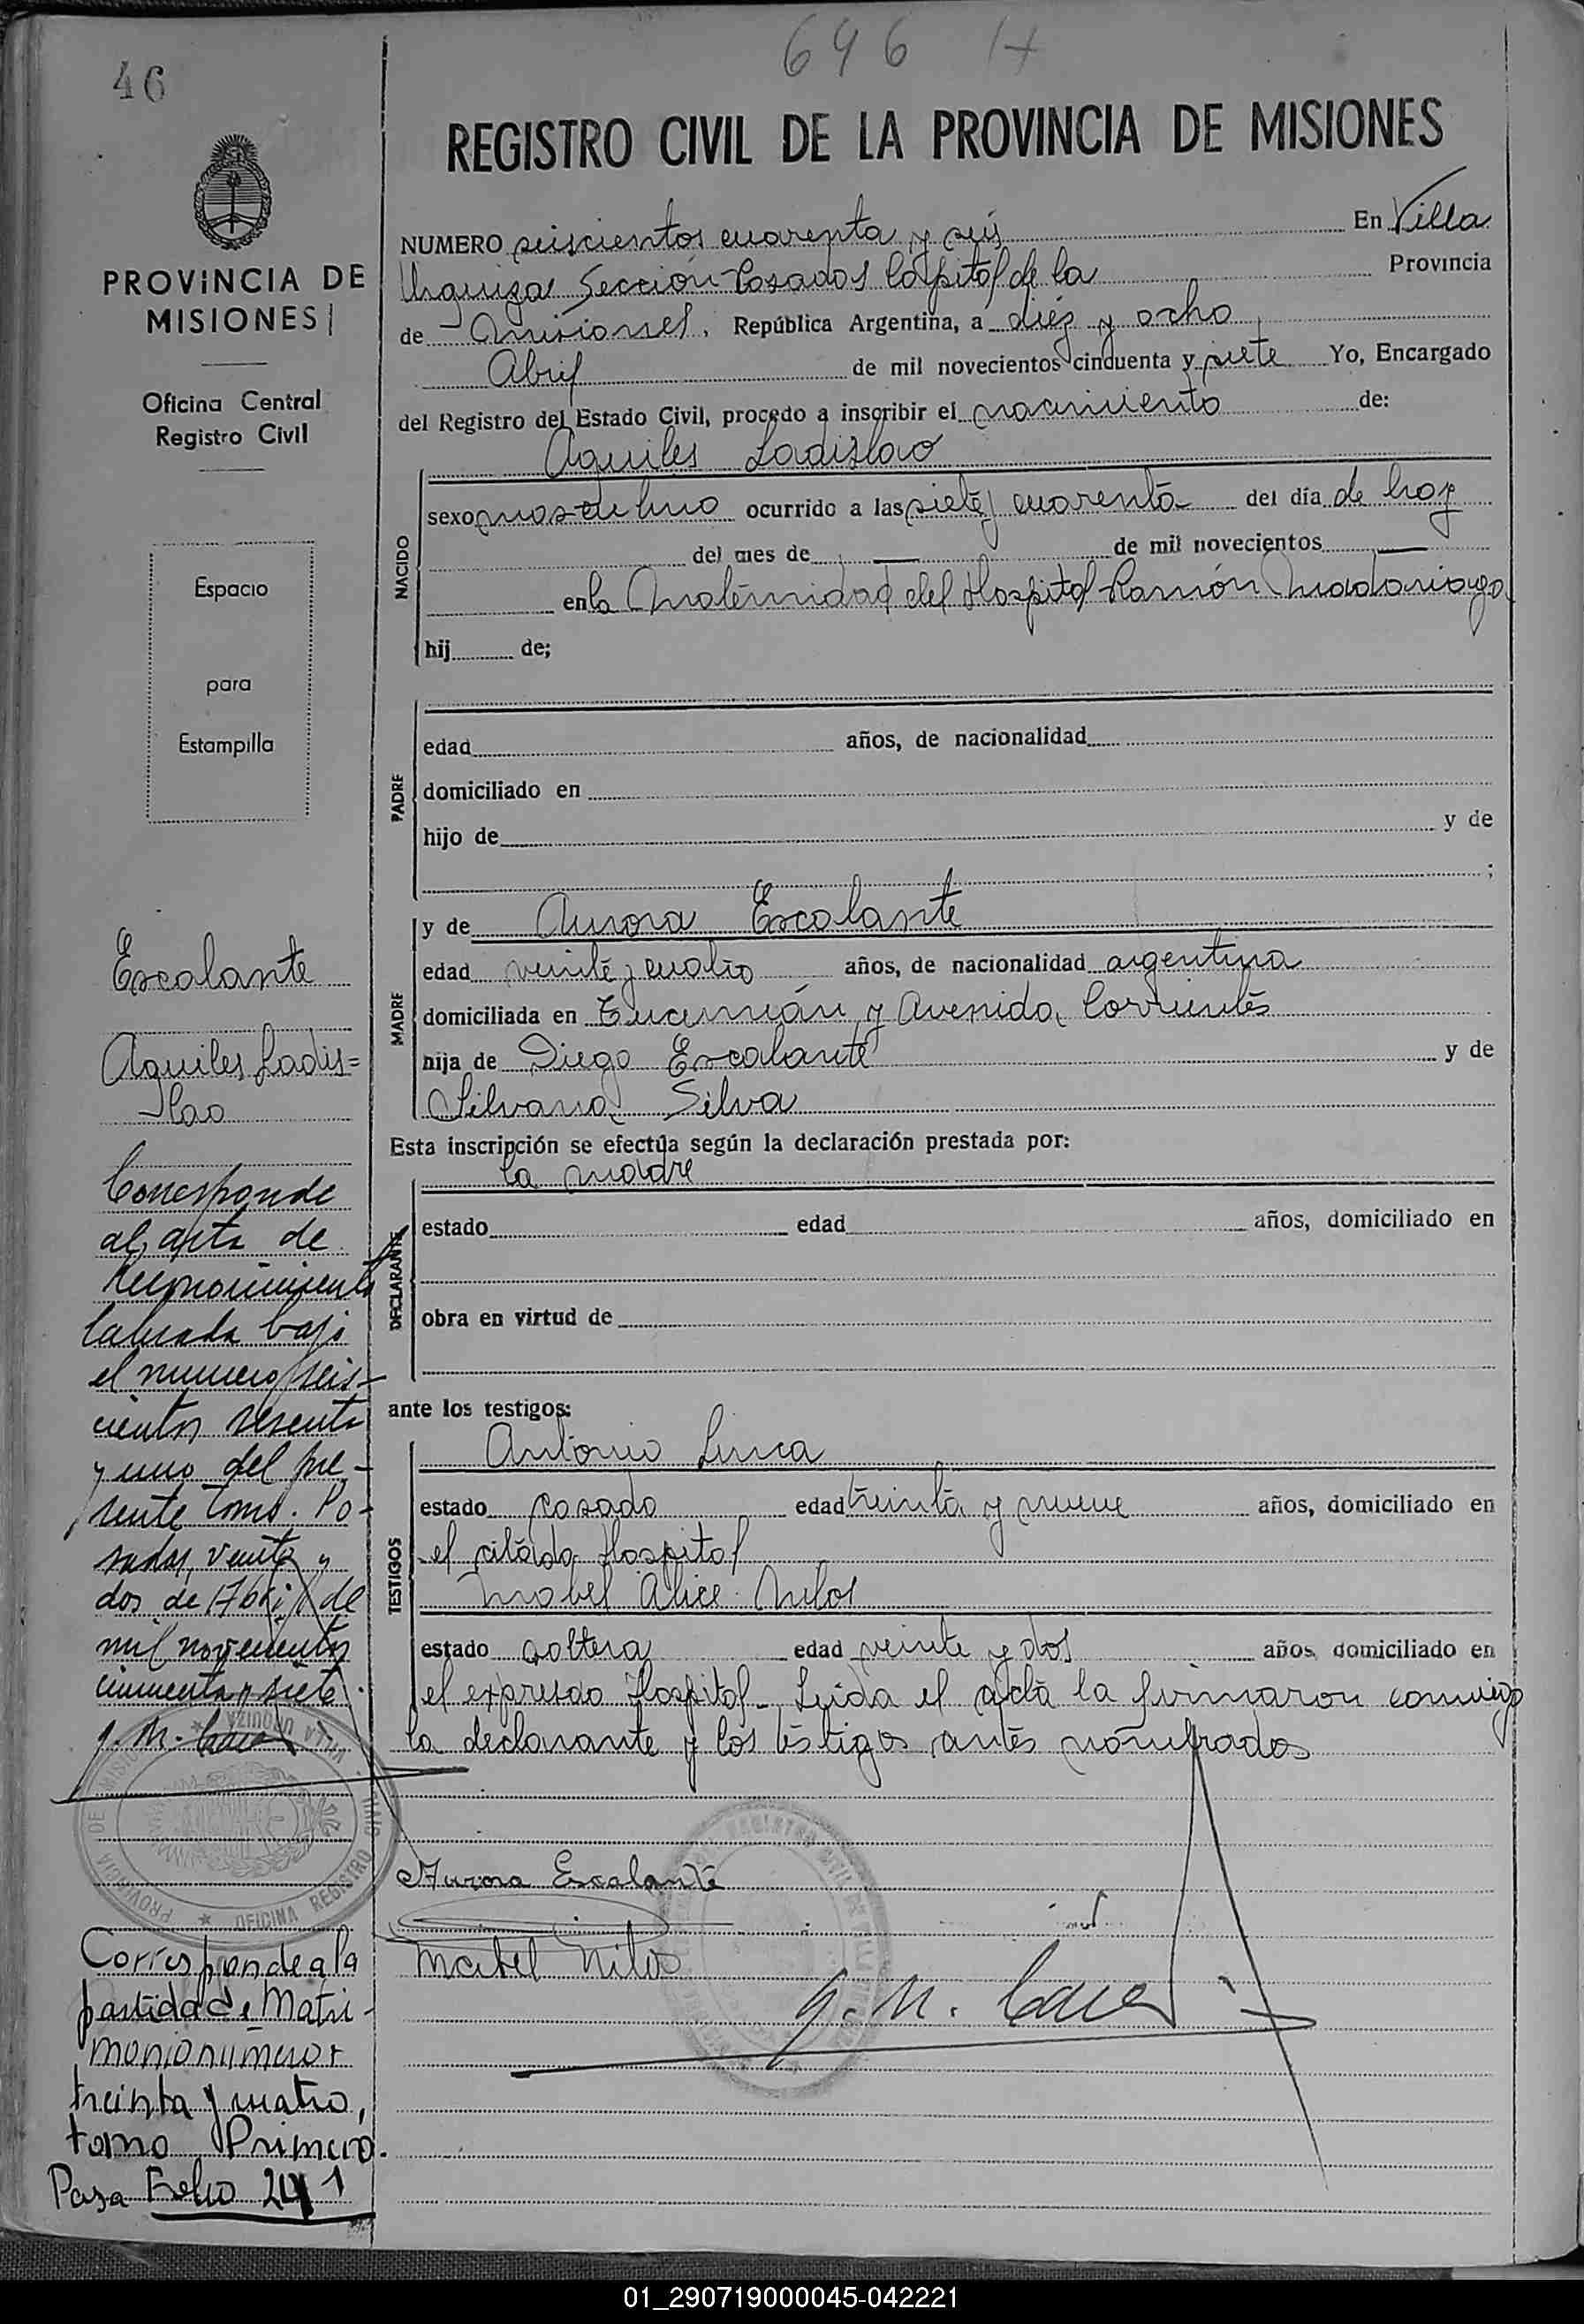 646 H
46
REGISTRO CIVIL DE LA PROVINCIA DE MISIONES
PROVINCIA DE
MISIONES
Oficina Central
Registro Civil
Espacio
para
Estampilla
NUMERO seiscientos cuarenta y seis En Villa
Urquiza Sección Posadas Capital de la Provincia
de Misiones, República Argentina, a diez y ocho
Abril de mil novecientos cincuenta y siete Yo, Encargado
del Registro del Estado Civil, procedo a inscribir el nacimiento de:
NACIDO
Aquiles Ladislao
sexo masculino ocurrido a las siete y cuarenta del día de hoy
del mes de — de mil novecientos —
en la Maternidad del Hospital Ramón Madariaga
hij de;
PADRE
edad años, de nacionalidad
domiciliado en
hijo de y de
;
MADRE
y de Aurora Escalante
edad veinte y cuatro años, de nacionalidad argentina
domiciliada en Tucumán y Avenida Corrientes
hija de Diego Escalante y de
Silvana Silva
Esta inscripción se efectúa según la declaración prestada por:
DECLARANTE
la madre
estado edad años, domiciliado en
obra en virtud de
ante los testigos:
TESTIGOS
Antonio Luca
estado casado edad treinta y nueve años, domiciliado en
el citado Hospital
Mabel Alice Milos
estado soltera edad veinte y dos años domiciliado en
el expresdo Hospital. Leída el acta la firmaron conmigo
la declarante y los testigos antes nombrados
Aurora Escalante
Mabel Milos
Escalante
Aquiles Ladis=
lao
Corresponde
al acta de
Reconocimiento
labrada bajo
el numero seis-
cientos sesenta
y uno del pre-
sente tomo. Po-
sadas, veinte y
dos de Abril de
mil novecientos
cincuenta y siete.
PROVINCIA DE MISIONES
OFICINA REGISTRO CIVIL
VILLA URQUIZA
Corresponde a la
partida de Matri-
monio número
treinta y cuatro,
tomo Primero.
Pasa Folio 241
01_290719000045-042221